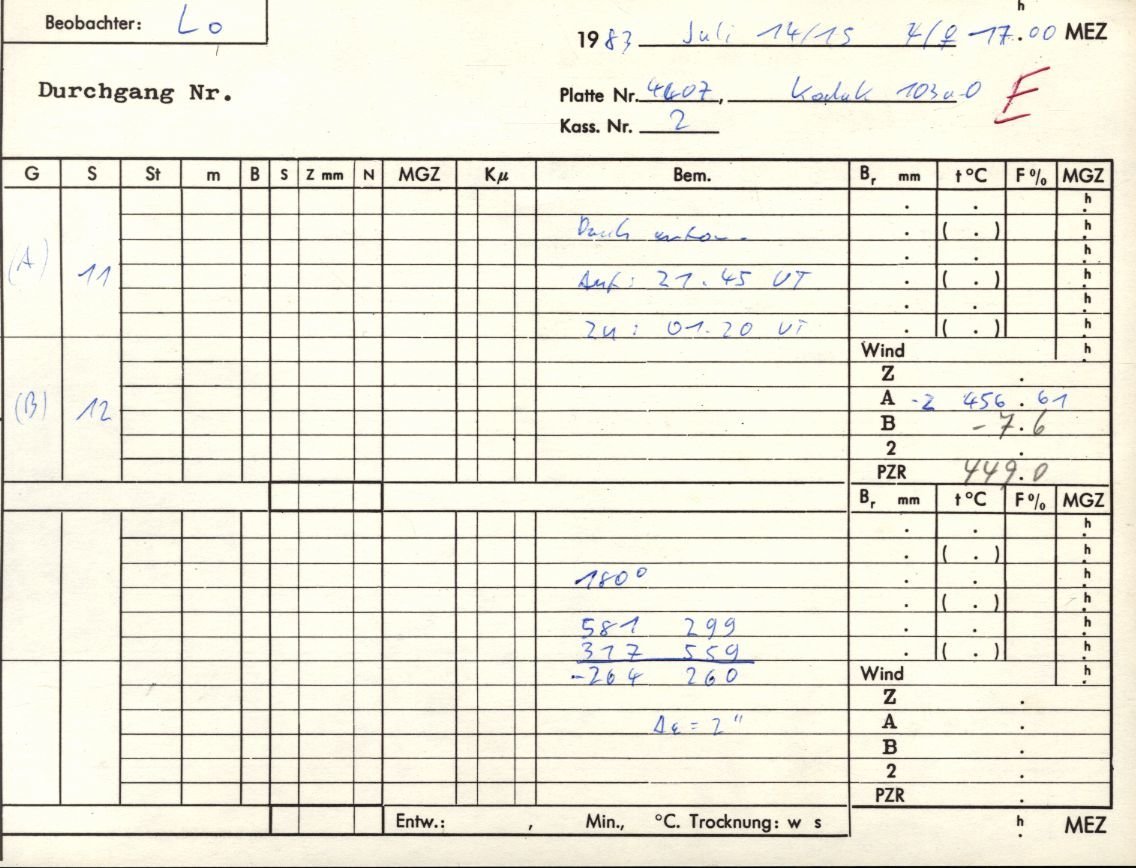 Beobachter: Lo
h
1983 Juli 14/15 4/♀ 17.00 MEZ
Durchgang Nr.
Platte Nr. 4407, Kodak 103a-O E
Kass. Nr. 2
G S St m B S Z mm N MGZ Kμ Bem. Br mm t°C F% MGZ
. . h
. ( . ) h
(A) 11 . . h
Auf: 21.45 UT . ( . ) h
. . h
zu: 01.20 UT . ( . ) h
Wind h
Z .
(B) 12 A -2 456.61
B -7.6
2 .
PZR 449.0
Br mm t°C F% MGZ
. . h
. ( . ) h
180° . . h
. ( . ) h
581 299 . . h
317 559 . ( . ) h
-264 260 Wind h
Z .
Δε = 2" A .
B .
2 .
PZR .
Entw.: , Min., °C. Trocknung: w s h . MEZ